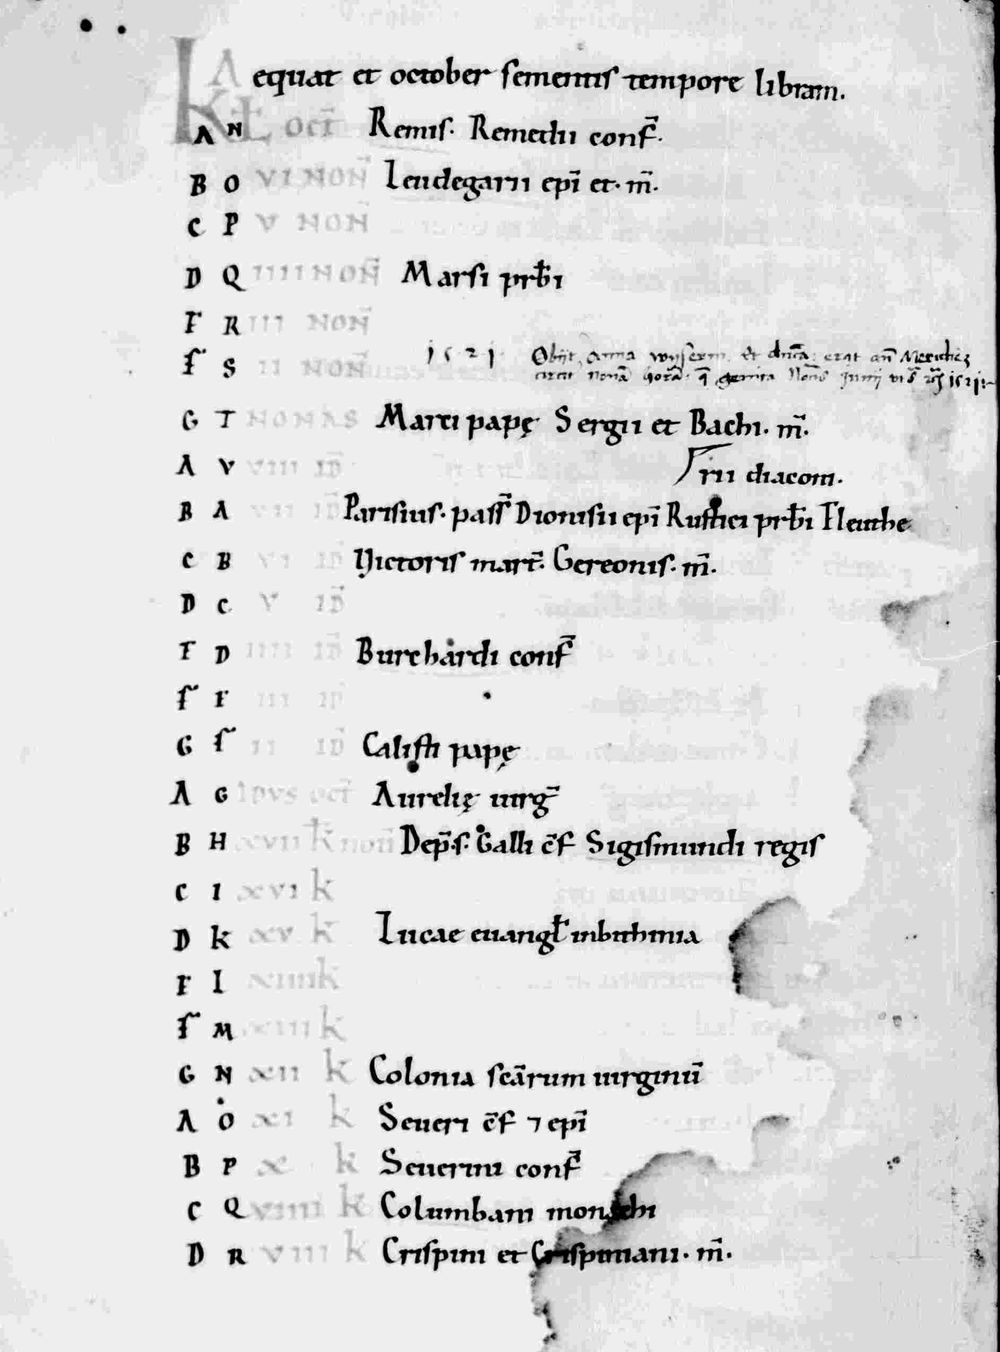 Aequat et october sementis tempore libram.
A N KL oct̄ Remis. Remedii conf̄.
B O VI NON̄ Leudegarii ep̄i et. m̄.
C P V NON̄
D Q IIII NON̄ Marsi prb̄i
F R III NON̄
f S II NON̄ 1521 Obijt Anna
G T NONAS Marci papę Sergii et Bachi. m̄.
A V VIII ID̄ rii diacom.
B A VII ID̄ Parisius. pass̄ Dionisii ep̄i Rustici prb̄i Eleuthe
C B VI ID̄ Victoris mart̄. Gereonis. m̄.
D C V ID̄
F D IIII ID̄ Burchardi conf̄
f F III ID̄
G f II ID̄ Calisti papę
A G IDVS oct̄ Aurelię uirḡ
B H XVII k̄ noū Dep̄s. Galli c̄f Sigismundi regis
C I XVI k
D k XV k Lucae euangl̄ inbithinia
F L XIIII k
f M XIII k
G N XII k Colonia sc̄arum uirginū
A O XI k Seueri c̄f ⁊ ep̄i
B P X k Seuerini conf̄
C Q VIIII k Columbani monachi
D R VIII k Crispini et Crispiniani. m̄.